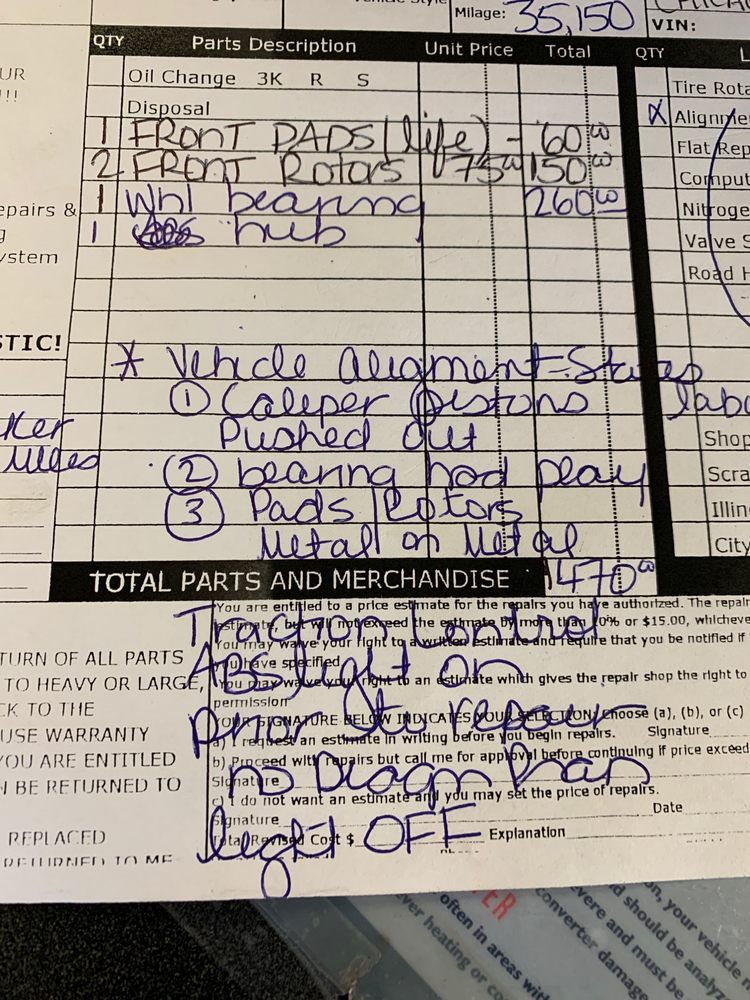 Milage: 35,150
VIN:
QTY Parts Description Unit Price Total QTY
Oil Change 3K R S
Disposal
1 FRONT PADS (life) - 60 00
2 FRONT Rotors 75 00 150 00
1 Whl bearing 260 00
1 hub
Tire Rota
X Alignme
Flat Rep
Comput
Nitroge
Valve S
Road H
epairs &
g
ystem
STIC!
* Vehicle Aligment - States
① Caliper pistons
Pushed out
② bearing had play
③ Pads/Rotors
Metal on Metal
labo
Shop
Scra
Illin
City
TOTAL PARTS AND MERCHANDISE 470 00
You are entitled to a price estimate for the repairs you have authorized. The repair
estimate, but will not exceed the estimate by more than 10% or $15.00, whicheve
You may waive your right to a written estimate and require that you be notified if
you have specified.
You may waive your right to an estimate which gives the repair shop the right to
permission
YOUR SIGNATURE BELOW INDICATES YOUR SELECTION: Choose (a), (b), or (c)
a) I request an estimate in writing before you begin repairs. Signature
b) Proceed with repairs but call me for approval before continuing if price exceed
Signature
c) I do not want an estimate and you may set the price of repairs.
Signature Date
Total Revised Cost $ Explanation
Traction control
ABS light on
prior
repair
no
light OFF
TURN OF ALL PARTS
TO HEAVY OR LARGE,
CK TO THE
USE WARRANTY
YOU ARE ENTITLED
N BE RETURNED TO
REPLACED
RETURNED TO ME
on, your vehicle
d should be analyz
evere and must be
converter damag
often in areas with
ever heating or co